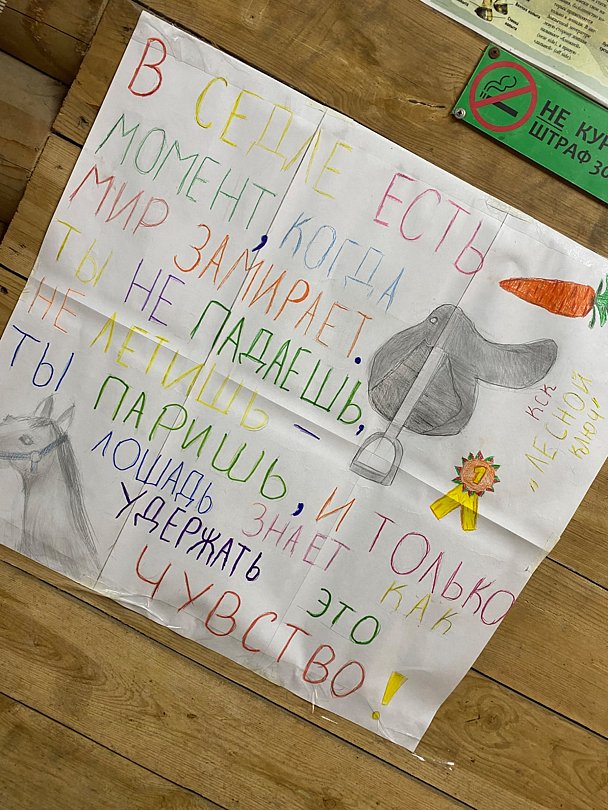 В СЕДЛЕ ЕСТЬ
МОМЕНТ, КОГДА
МИР ЗАМИРАЕТ.
ТЫ НЕ ПАДАЕШЬ,
НЕ ЛЕТИШЬ –
ТЫ ПАРИШЬ, И ТОЛЬКО
ЛОШАДЬ ЗНАЕТ КАК
УДЕРЖАТЬ ЭТО
ЧУВСТВО!
КСК
„ЛЕСНОЙ
КЛЮЧ"
1
НЕ КУР
ШТРАФ